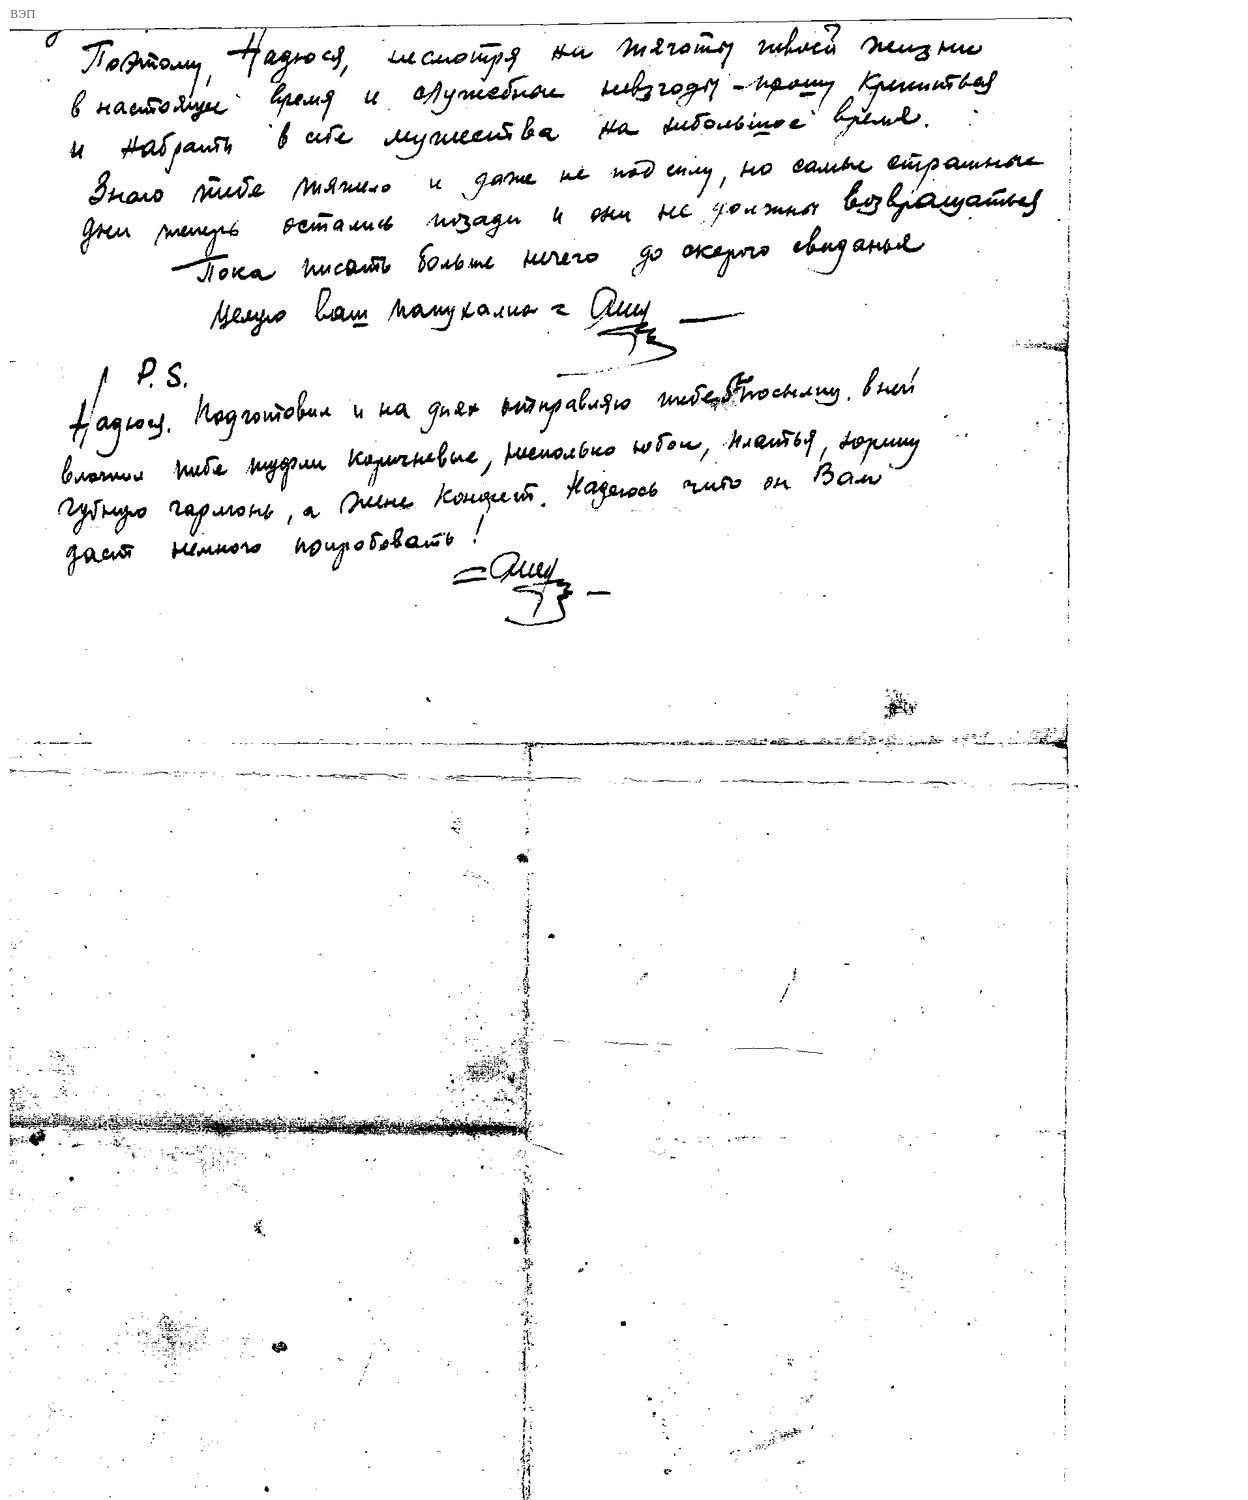 ВЭП
Поэтому, Надюся, несмотря на тяготы твоей жизни
в настоящее время и служебные невзгоды – прошу крепиться
и набрать в себе мужества на небольшое время.
Знаю тебе тяжело и даже не под силу, но самые страшные
дни теперь остались позади и они не должны возвращаться
Пока писать больше нечего до скорого свиданья
Целую ваш папукална =
P.S.
Надюся. Подготовил и на днях отправляю тебе посылку. В ней
вложил тебе туфли коричневые, несколько юбок, платья, Юрику
губную гармонь, а Жене конфет. Надеюсь что он Вам
даст немного попробовать!